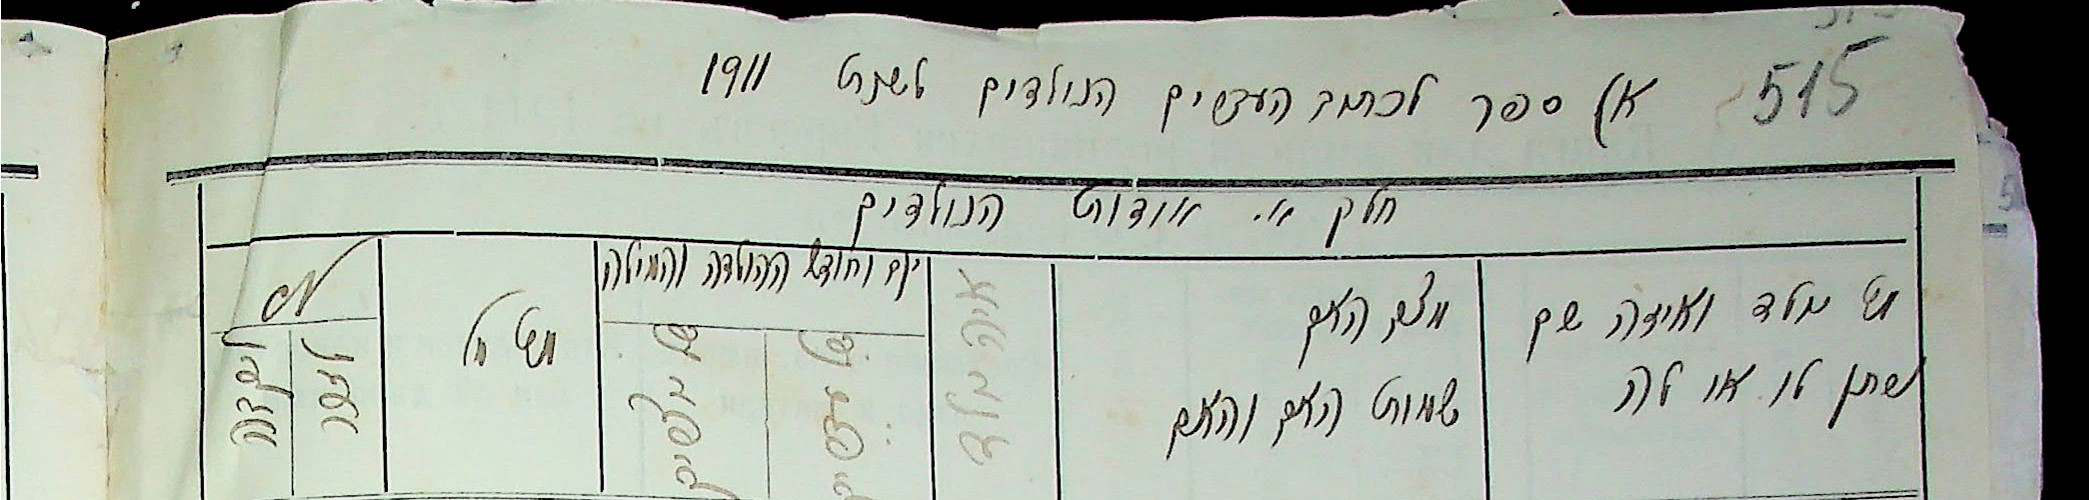 515
א) ספר לכתוב העברים הנולדים לשנת 1911
חלק א. אודות הנולדים
מי נולד ואיזה שם
שתן לו או לה
מצב האב
שמות האב והאם
איה נולד
יום וחודש ההולדה והמילה
של
של
מי מל
No
לזכר
לנקבה